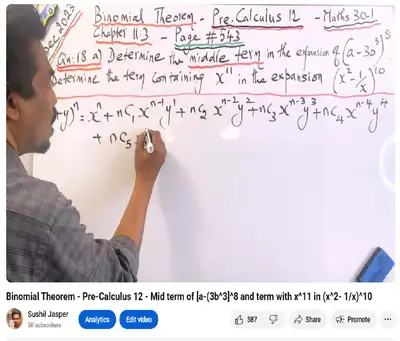 Dec 2023
Binomial Theorem - Pre-Calculus 12 - Maths 30-1
Chapter 11.3 - Page #543
Qn:18 a) Determine the middle term in the expansion of (a-3b³)⁸
Determine the term containing x¹¹ in the expansion (x²-1/x)¹⁰
+y)ⁿ = xⁿ + nC₁ xⁿ⁻¹y¹ + nC₂ xⁿ⁻²y² + nC₃ xⁿ⁻³y³ + nC₄ xⁿ⁻⁴y⁴
+ nC₅
Binomial Theorem - Pre-Calculus 12 - Mid term of [a-(3b^3]^8 and term with x^11 in (x^2- 1/x)^10
Sushil Jasper
5K subscribers
Analytics
Edit video
587
Share
Promote